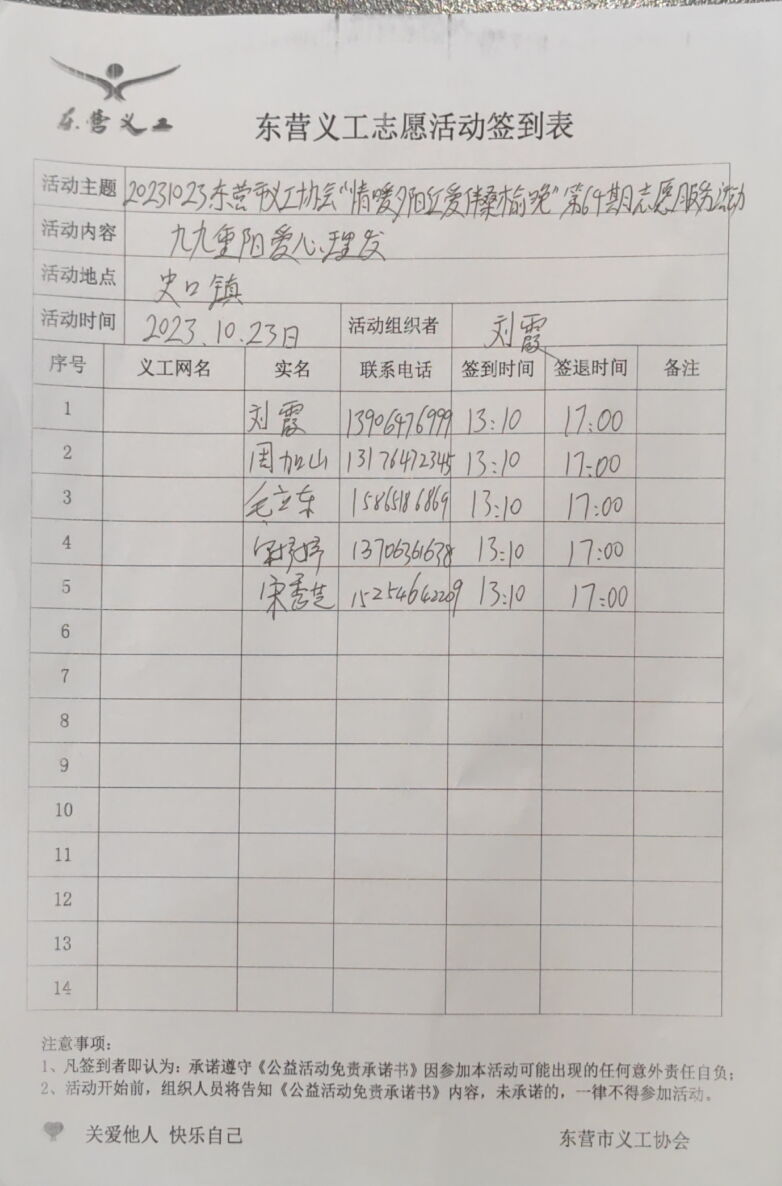 东营义工
东营义工志愿活动签到表
活动主题 20231023东营市义工协会“情暖夕阳红爱伴桑榆晚”第64期志愿服务活动
活动内容 九九重阳爱心理发
活动地点 史口镇
活动时间 2023.10.23日 活动组织者 刘霞
序号 义工网名 实名 联系电话 签到时间 签退时间 备注
1 刘霞 13906476999 13:10 17:00
2 周加山 13176472345 13:10 17:00
3 毛立东 15865186869 13:10 17:00
4 13706361638 13:10 17:00
5 宋秀芝 15254642209 13:10 17:00
6
7
8
9
10
11
12
13
14
注意事项:
1、凡签到者即认为:承诺遵守《公益活动免责承诺书》因参加本活动可能出现的任何意外责任自负;
2、活动开始前,组织人员将告知《公益活动免责承诺书》内容,未承诺的,一律不得参加活动。
关爱他人 快乐自己 东营市义工协会